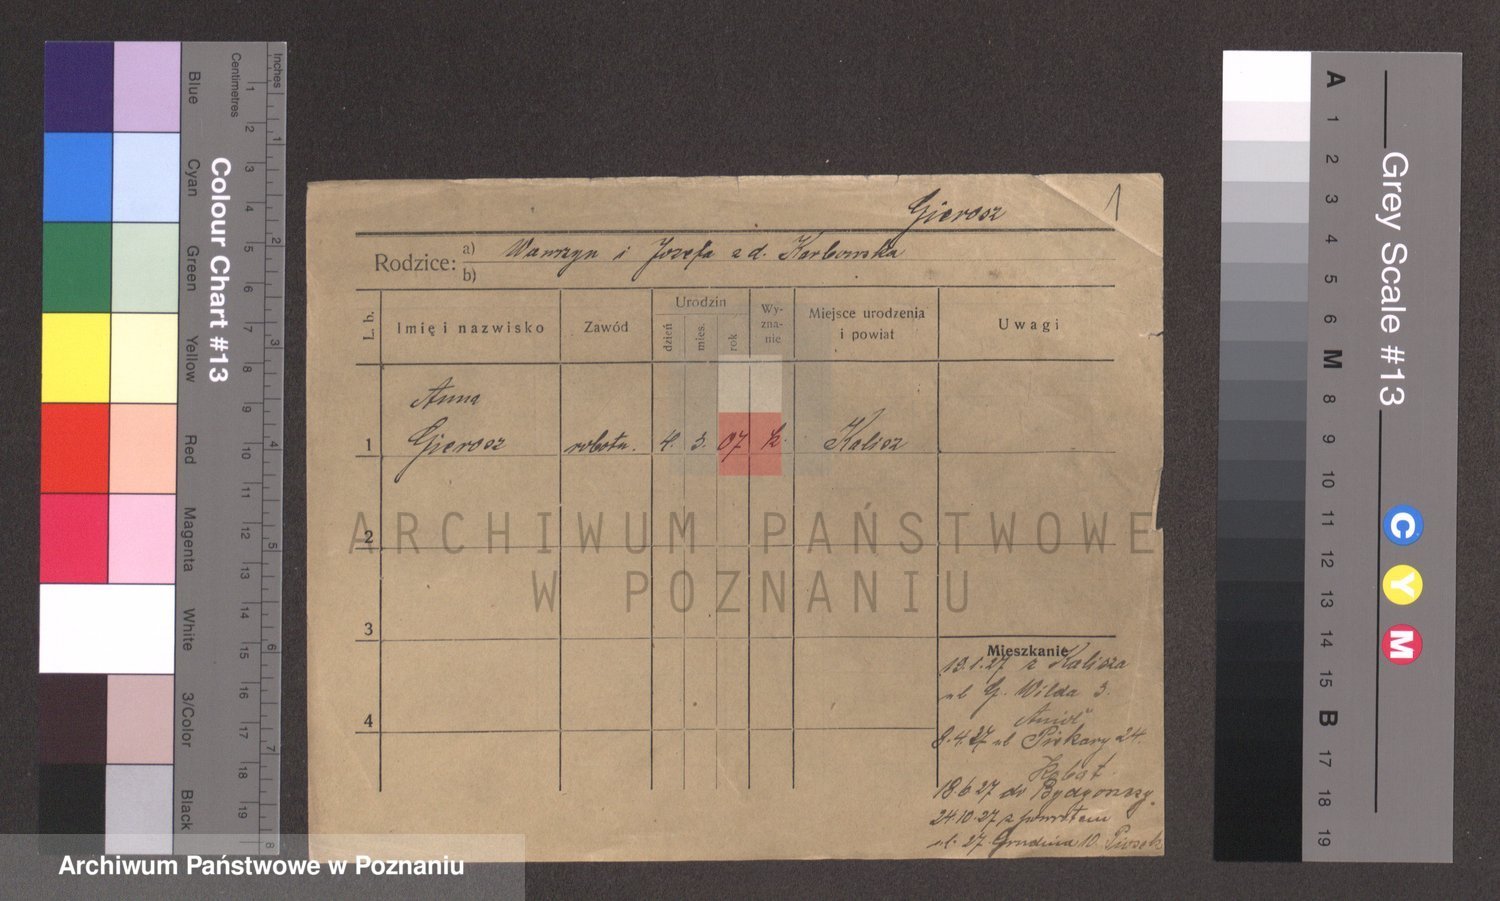 Gierosz
1
Rodzice: a) Wawrzyn i Józefa z d. Karbowska
b)
L. b.
Imię i nazwisko
Zawód
Urodzin
dzień
mies.
rok
Wy-
zna-
nie
Miejsce urodzenia
i powiat
Uwagi
Anna
1 Gierosz robotn. 4. 3. 07 k. Kalisz
2
3
4
Mieszkanie
13.1.27 z Kalisza
ul G. Wilda 3.
8.4.27 ul Piekary 24.
18.6.27 do Bydgoszczy.
24.10.27 z powrotem
ul. 27 Grudnia 10
ARCHIWUM PAŃSTWOWE
W POZNANIU
Archiwum Państwowe w Poznaniu
Colour Chart #13
Blue
Cyan
Green
Yellow
Red
Magenta
White
3/Color
Black
Centimetres
1 2 3 4 5 6 7 8 9 10 11 12 13 14 15 16 17 18 19
Inches
1 2 3 4 5 6 7 8
Grey Scale #13
A 1 2 3 4 5 6 M 8 9 10 11 12 13 14 15 B 17 18 19
C
Y
M